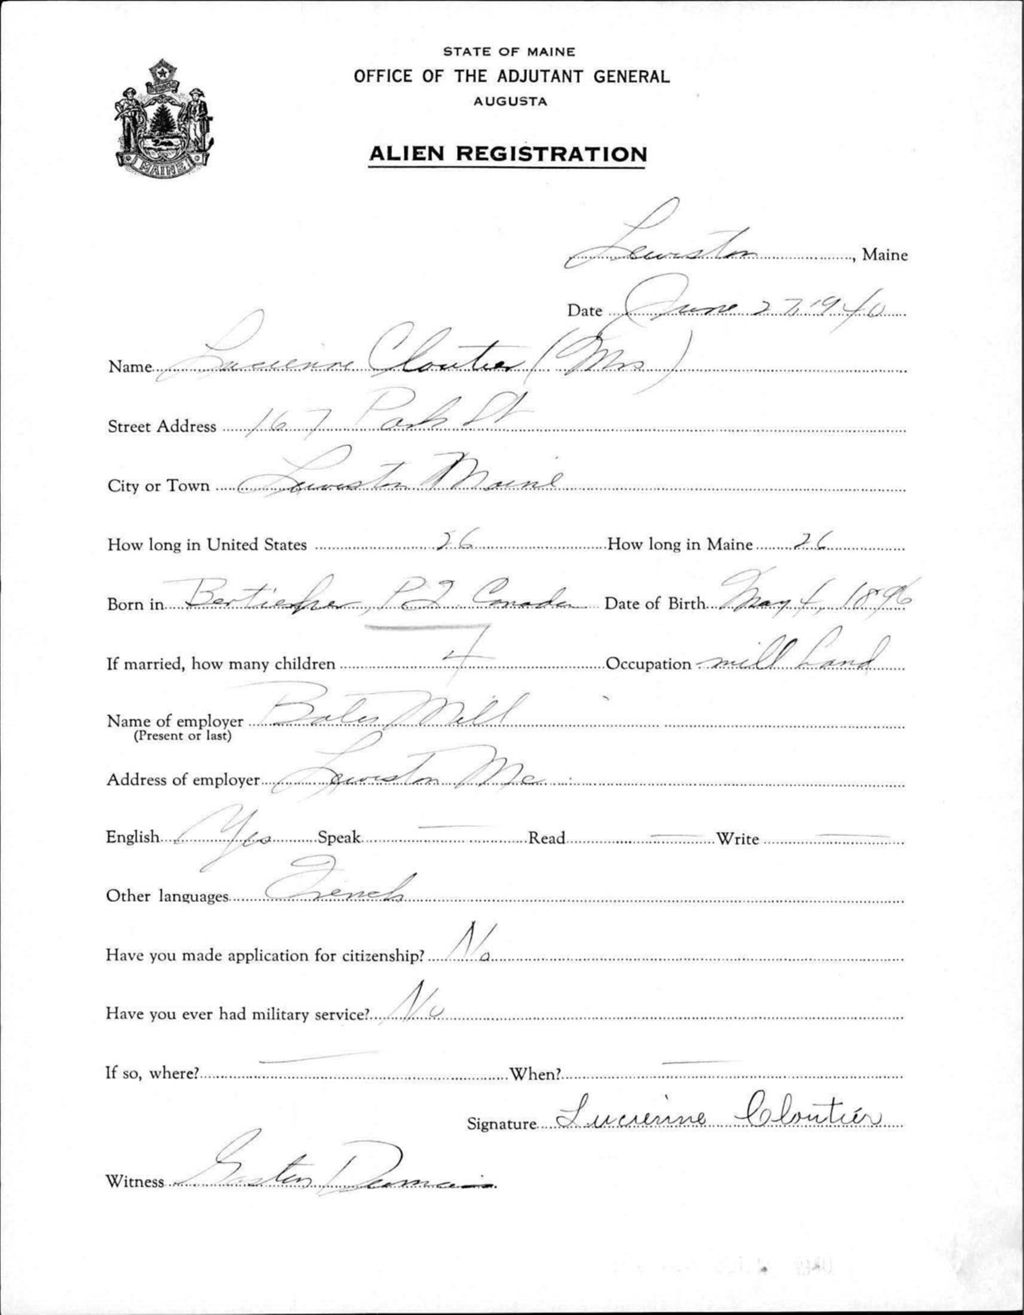 STATE OF MAINE
OFFICE OF THE ADJUTANT GENERAL
AUGUSTA
MAINE
ALIEN REGISTRATION
Lewiston, Maine
Date June 27, 1940
Name Lucienne Cloutier (Mrs)
Street Address 167 Park St
City or Town Lewiston Maine
How long in United States 26 How long in Maine 26
Born in P Q Canada Date of Birth May 4, 1896
If married, how many children 4 Occupation mill hand
Name of employer Bates Mill
(Present or last)
Address of employer Lewiston Me
English Yes Speak — Read — Write —
Other languages French
Have you made application for citizenship? No
Have you ever had military service? No
If so, where? — When? —
Signature Lucienne Cloutier
Witness